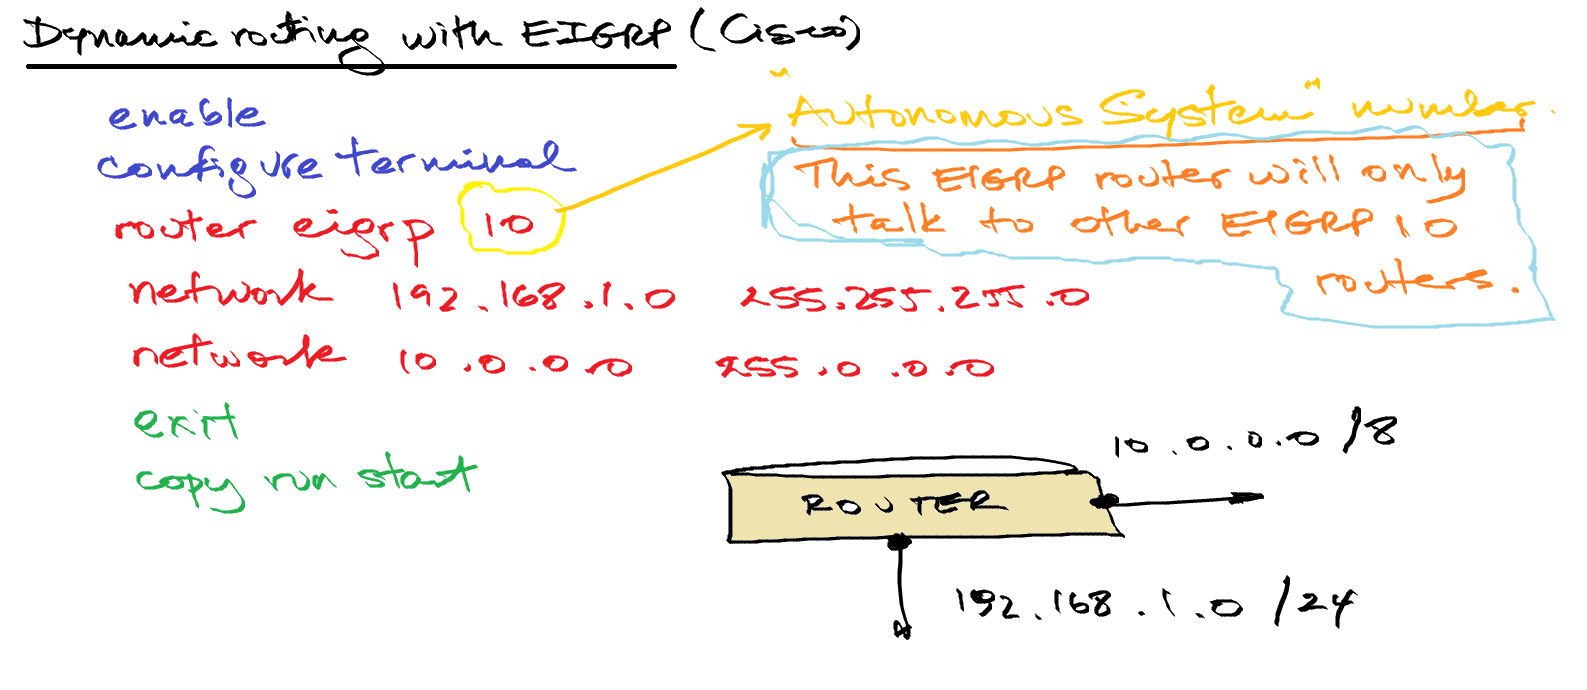 Dynamic routing with EIGRP (Cisco)
enable
configure terminal
router eigrp 10
network 192.168.1.0 255.255.255.0
network 10.0.0.0 255.0.0.0
exit
copy run start
"Autonomous System" number.
This EIGRP router will only
talk to other EIGRP 10
routers.
10.0.0.0 /8
ROUTER
192.168.1.0 /24